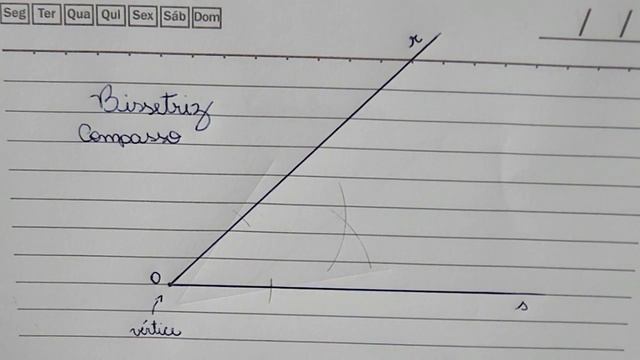 Seg Ter Qua Qui Sex Sáb Dom
/ /
r
Bissetriz
Compasso
O
s
vértice